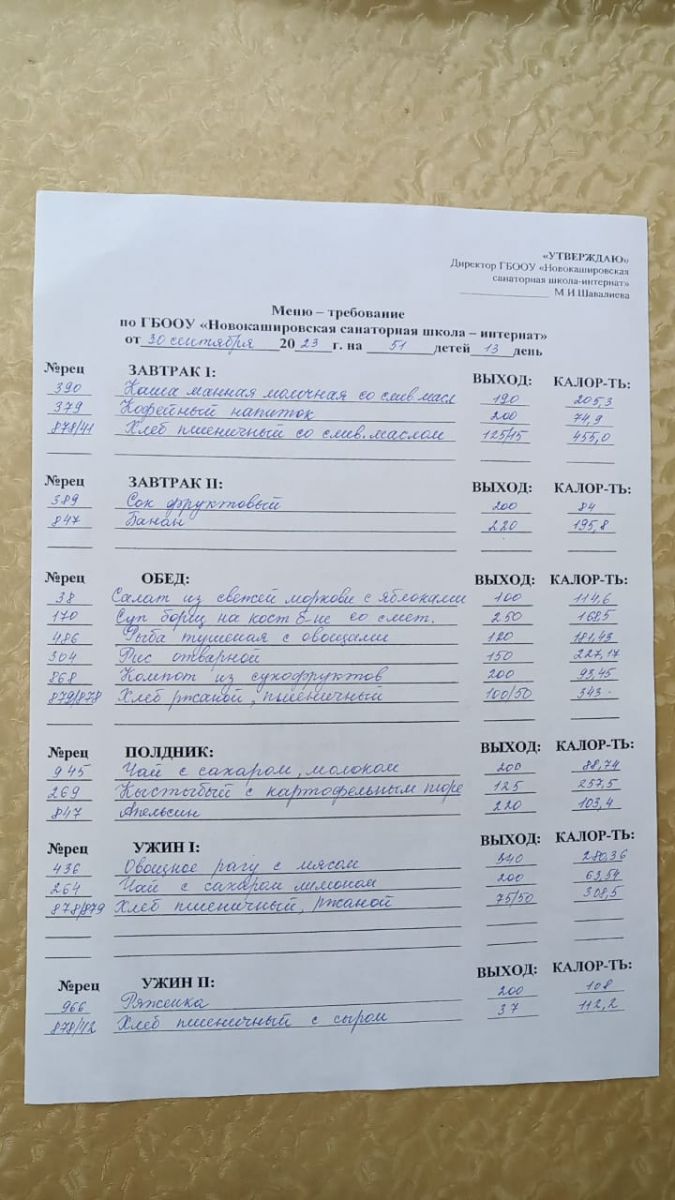 «УТВЕРЖДАЮ»
Директор ГБООУ «Новокашировская
санаторная школа-интернат»
________________ М И Шавалиева
Меню – требование
по ГБООУ «Новокашировская санаторная школа – интернат»
от 30 сентября 20 23 г. на 51 детей 13 день
№рец ЗАВТРАК I: ВЫХОД: КАЛОР-ТЬ:
390 Каша манная молочная со слив масл 190 205,3
379 Кофейный напиток 200 74,9
878/41 Хлеб пшеничный со слив. маслом 125/15 455,0
№рец ЗАВТРАК II: ВЫХОД: КАЛОР-ТЬ:
389 Сок фруктовый 200 84
847 Банан 220 195,8
№рец ОБЕД: ВЫХОД: КАЛОР-ТЬ:
38 Салат из свежей моркови с яблоками 100 114,6
170 Суп борщ на кост б-не со смет. 250 168,5
486 Рыба тушеная с овощами 120 181,43
304 Рис отварной 150 227,17
868 Компот из сухофруктов 200 93,45
879/878 Хлеб ржаной, пшеничный 100/50 343
№рец ПОЛДНИК: ВЫХОД: КАЛОР-ТЬ:
945 Чай с сахаром, молоком 200 88,74
269 Кыстыбый с картофельным пюре 125 257,5
847 Апельсин 220 103,4
№рец УЖИН I: ВЫХОД: КАЛОР-ТЬ:
436 Овощное рагу с мясом 340 280,36
264 Чай с сахаром лимоном 200 63,54
878/879 Хлеб пшеничный, ржаной 75/50 308,5
№рец УЖИН II: ВЫХОД: КАЛОР-ТЬ:
966 Ряженка 200 108
878/42 Хлеб пшеничный с сыром 37 112,2